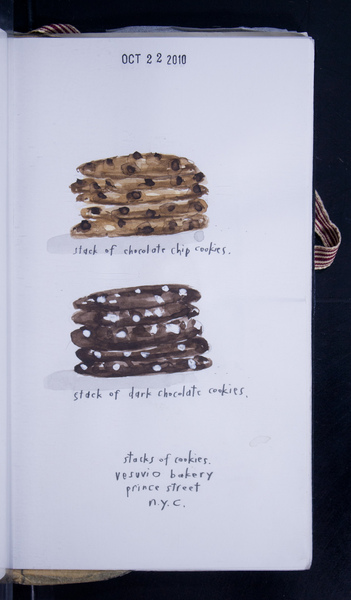 OCT 22 2010
stack of chocolate chip cookies.
stack of dark chocolate cookies.
stacks of cookies.
vesuvio bakery
prince street
n.y.c.